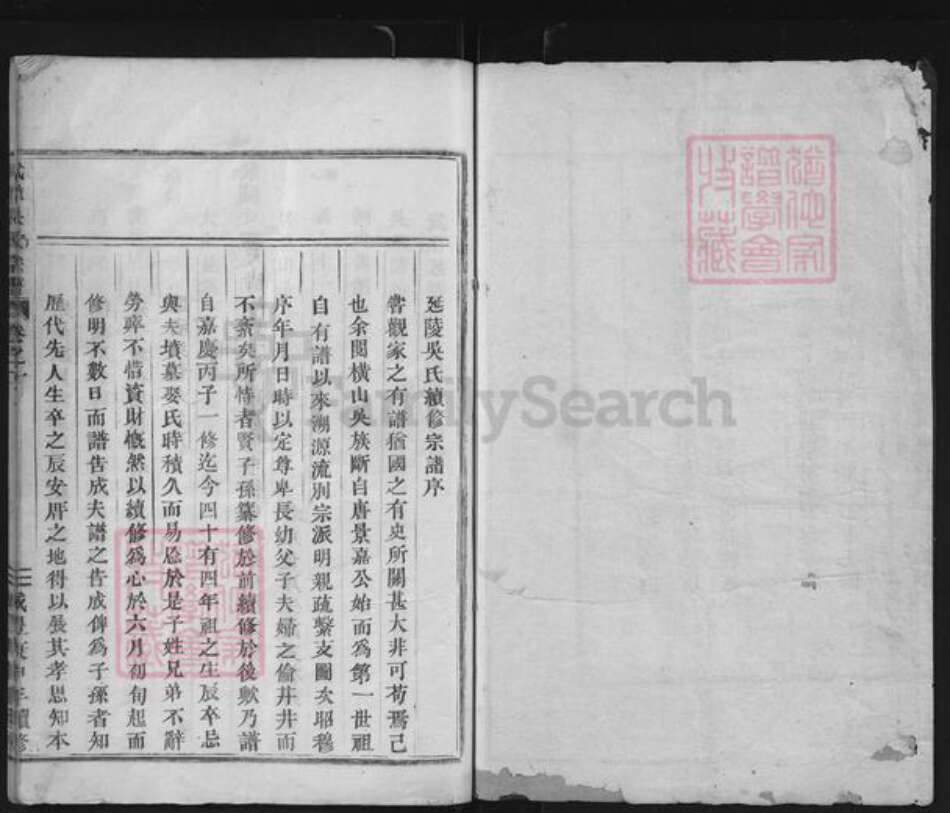 猶他家
譜學會
收藏
延陵吳氏續修宗譜序
嘗觀家之有譜猶國之有史所關甚大非可苟焉已
也余閱橫山吳族斷自唐景嘉公始而爲第一世祖
自有譜以來溯源流別宗派明親疏繫支圖次昭穆
序年月日時以定尊卑長幼父子夫婦之倫井井而
不紊矣所恃者賢子孫纂修於前續修於後歟乃譜
自嘉慶丙子一修迄今四十有四年祖之生辰卒忌
與夫墳墓娶氏時積久而易忘於是子姓兄弟不辭
勞瘁不惜資財慨然以續修爲心於六月初旬起而
修明不數日而譜告成夫譜之告成俾爲子孫者知
歷代先人生卒之辰安厝之地得以展其孝思知本
吳氏宗譜
卷之一
咸豐庚申年續修
FamilySearch